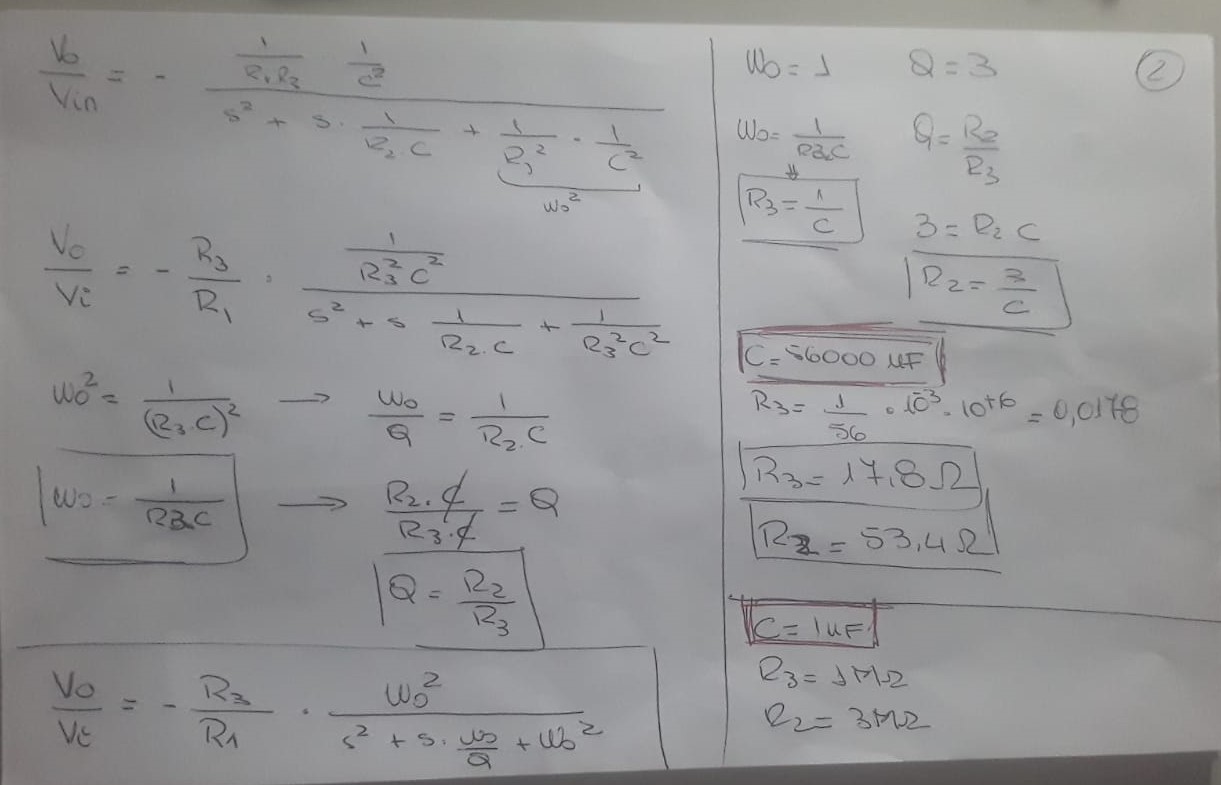 Vo/Vin = - (1/(R1R3) 1/C²) / (s² + s · 1/(R2·C) + 1/R3² · 1/C²)
wo²
Vo/Vi = - R3/R1 · (1/(R3²C²)) / (s² + s 1/(R2·C) + 1/(R3²C²))
wo² = 1/(R3·C)² → wo/Q = 1/(R2·C)
wo = 1/(R3·C) → (R2·C)/(R3·C) = Q
Q = R2/R3
Vo/Vi = - R3/R1 · wo² / (s² + s·wo/Q + wo²)
Wo = 1 Q = 3 2
Wo = 1/(R3·C) Q = R2/R3
R3 = 1/C
3 = R2 C
R2 = 3/C
C = 56000 µF
R3 = 1/56 · 10⁻³ · 10⁺⁶ = 0,0178
R3 = 17,8 Ω
R2 = 53,4 Ω
C = 1uF
R3 = 1MΩ
R2 = 3MΩ